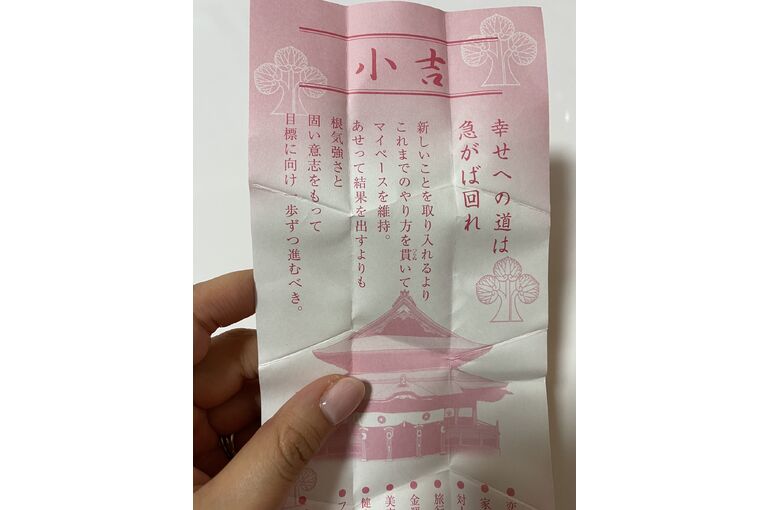 小吉
幸せへの道は
急がば回れ
新しいことを取り入れるより
これまでのやり方を貫いて
つらぬ
マイペースを維持。
あせって結果を出すよりも
根気強さと
固い意志をもって
目標に向け一歩ずつ進むべき。